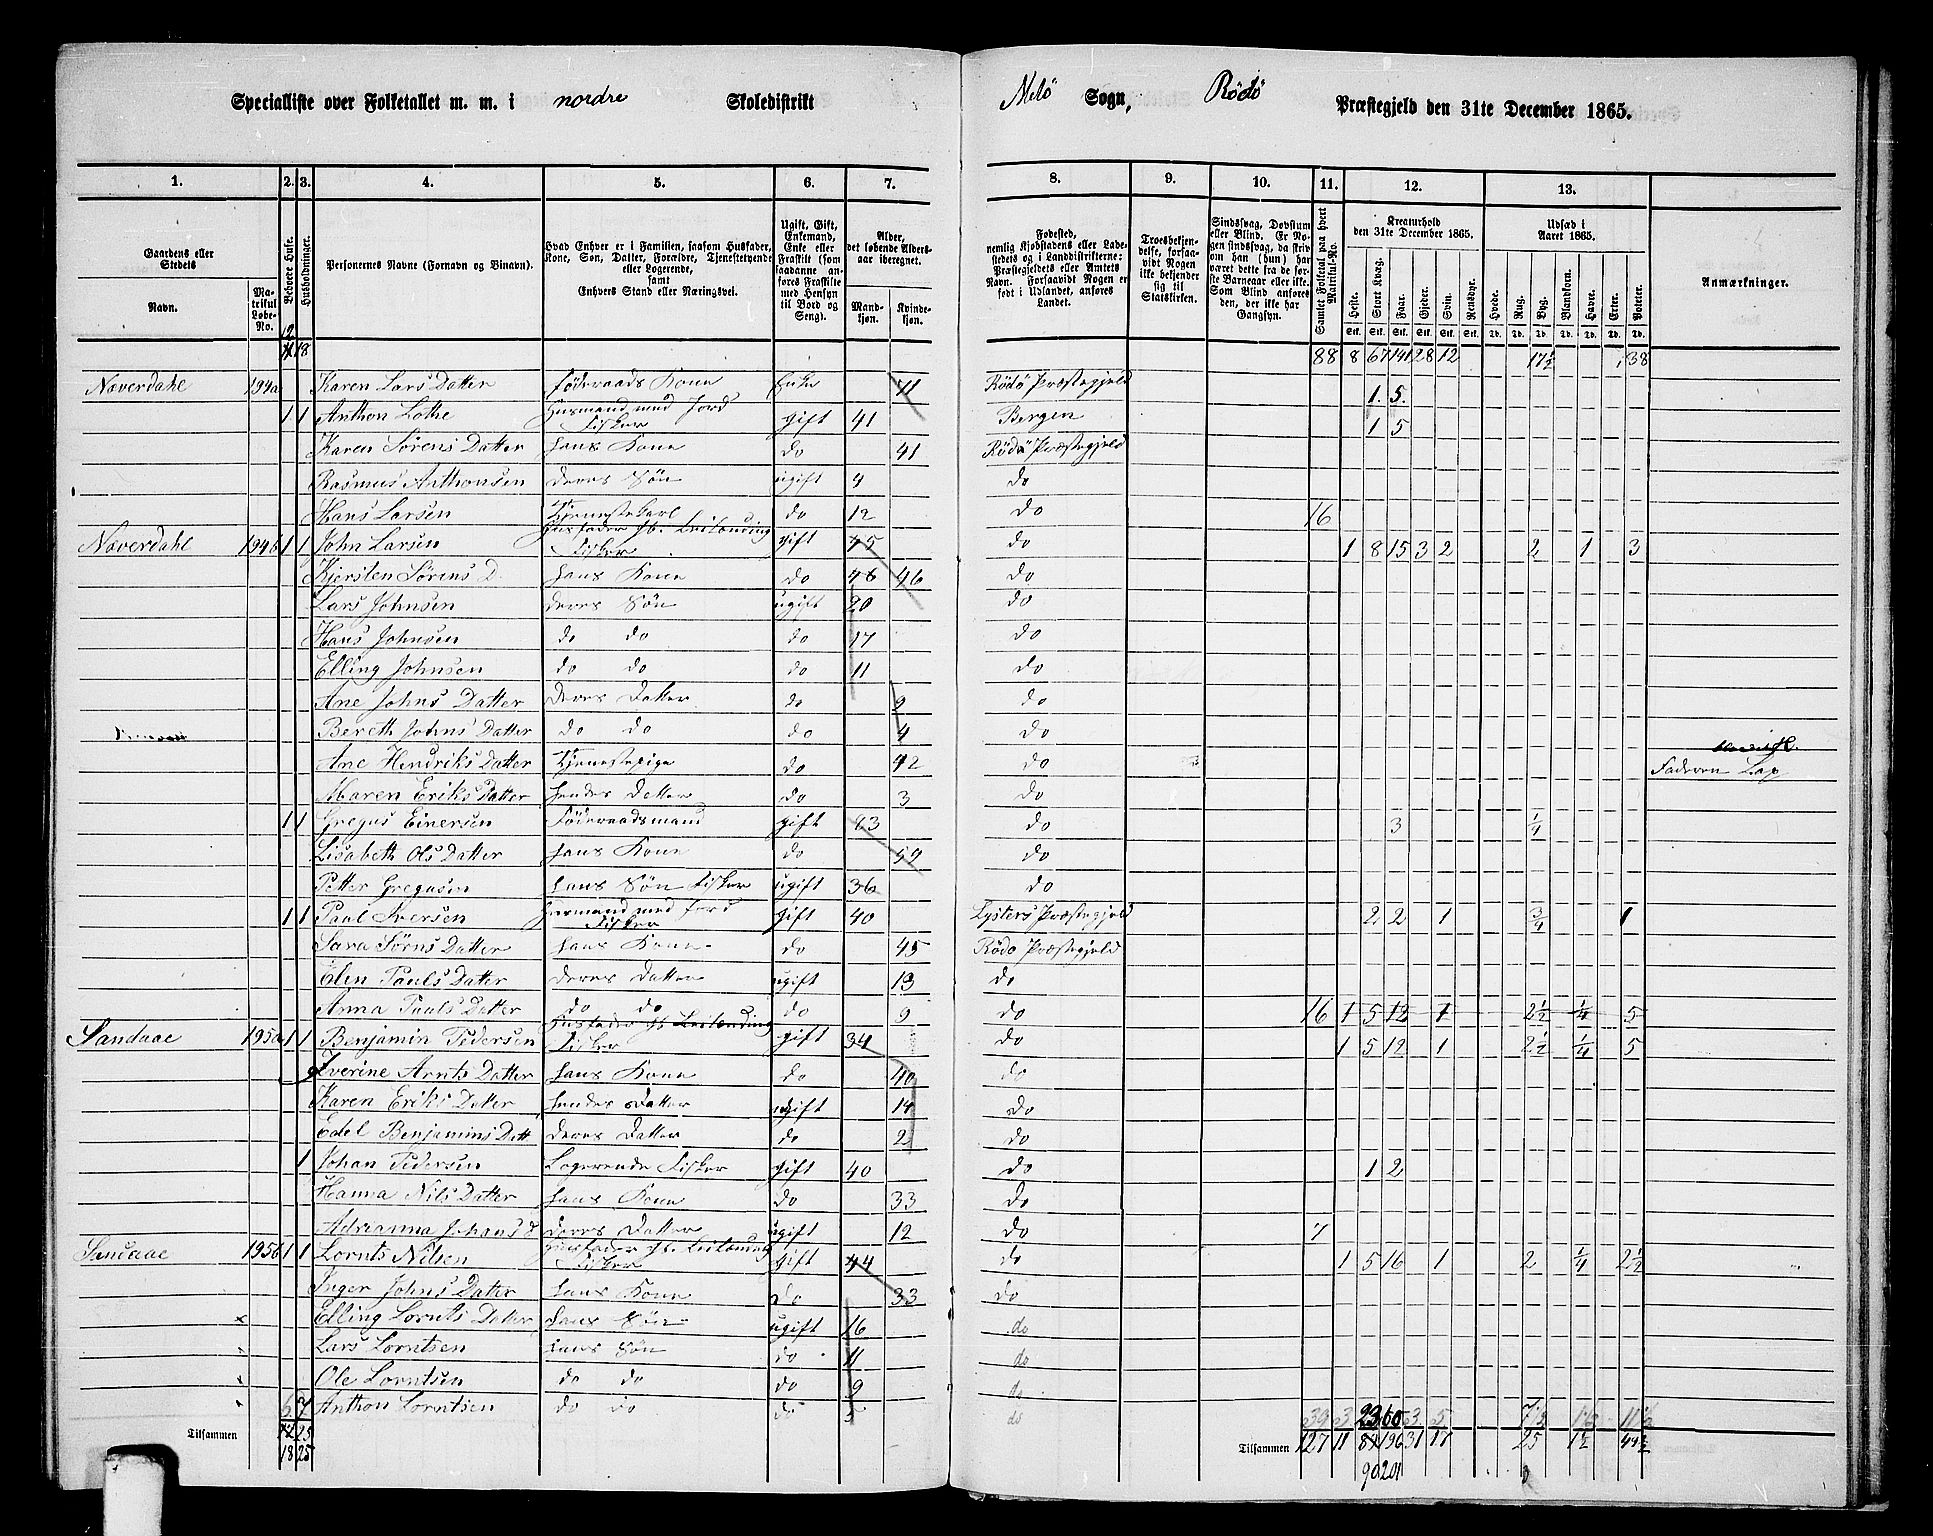 Specialliste over Folketallet m. m. i nordre Skoledistrikt Melö Sogn, Rödö Præstegjeld den 31te December 1865.
1. 2. 3. 4. 5. 6. 7. 8. 9. 10. 11. 12. 13.
Gaardens eller Stedets
Navn.
Matrikul Løbe-No.
Beboede Huse.
Husholdninger.
Personernes Navne (Fornavn og Binavn).
Hvad Enhver er i Familien, saasom Husfader, Kone, Søn, Datter, Forældre, Tjenestetyende eller Logerende, samt Enhvers Stand eller Næringsvei.
Ugift, Gift, Enkemand, Enke eller Fraskilt (som saadanne anføres Fraskilte med Hensyn til Bord og Seng).
Alder, det løbende Alders-aar iberegnet.
Mandkjøn.
Kvindekjøn.
Fødested, nemlig Kjøbstadens eller Ladestedets og i Landdistrikterne: Præstegjeldets eller Amtets Navn. Forsaavidt Nogen er født i Udlandet, anføres Landet.
Troesbekjendelse, forsaavidt Nogen ikke bekjender sig til Statskirken.
Sindssvag, Døvstum eller Blind. Er Nogen sindssvag, da skrives om han (hun) har været dette fra de første Barneaar eller ikke. Som Blind anføres den, der ikke har Gangsyn.
Samlet Folketal paa hvert Matrikul-No.
Kreaturhold den 31te December 1865.
Heste. Stort Kvæg. Faar. Gjeder. Svin. Rensdyr.
Udsæd i Aaret 1865.
Hvede. Rug. Byg. Blandkorn. Havre. Erter. Poteter.
Anmærkninger.
12 18 88 8 67 141 28 12 17½ 138
Naverdahl 194a Karen Lars Datter Föderaads Kone Enke 71 Rödö Præstegjeld 1 5
1 1 Anthon Lothe Husmand med Jord Fisker gift 41 Bergen 1 5
Karen Sörens Datter hans Kone do 41 Rödö Præstegjeld
Rasmus Anthonsen deres Sön ugift 4 do
Hans Larsen Tjenestekarl do 12 do 16
Naverdahl 194b 1 1 John Larsen Husfader Gb. Leilænding Fisker gift 45 do 1 8 15 3 2 2 1 3
Kjersten Sörens D. hans Kone do 46 46 do
Lars Johnsen deres Sön ugift 20 do
Hans Johnsen do do do 17 do
Elling Johnsen do do do 11 do
Ane Johns Datter deres Datter do 9 do
Bereth Johns Datter do do do 4 do
Ane Hendriks Datter Tjenestepige do 42 do Faderen Lap
Maren Eriks Datter hendes Datter do 3 do
1 1 Gregus Einersen Föderaadsmand gift 83 do 3 ¼
Lisabeth Ols Datter hans Kone do 59 do
Petter Gregusen hans Sön Fisker ugift 36 do
1 1 Paul Iversen Husmand med Jord Fisker gift 40 Lysters Præstegjeld 2 2 1 ¾ 1
Sara Sörns Datter hans Kone do 45 Rödö Præstegjeld
Elen Pauls Datter deres Datter ugift 13 do
Anna Pauls Datter do do do 9 do 16 1 5 12 1 2½ ¼ 5
Sandaae 195a 1 1 Benjamin Pedersen Husfader Gb. Leilænding Fisker gift 34 do 1 5 12 1 2½ ¼ 5
Iverine Arnts Datter hans Kone do 40 do
Karen Eriks Datter hendes Datter ugift 14 do
Edel Benjamins Datt. deres Datter do 2 do
1 Johan Pedersen Logerende Fisker gift 40 do 1 2
Hanna Nils Datter hans Kone do 33 do
Adrianna Johans d deres Datter ugift 12 do 7
Sandaae 195b 1 1 Lornts Nilsen Husfader Gb. Leilænding Fisker gift 44 do 1 5 16 1 2 ¼ 2½
Inger Johns Datter hans Kone do 33 do
Elling Lornts Datter hans Sön ugift 16 do
Lars Lorntsen hans Sön do 11 do
Ole Lorntsen do do do 9 do
6 7 Anthon Lorntsen do do do 5 do 39 3 23 3 5 7½ 1½ 11½
Tilsammen 12 25 Tilsammen 127 11 196 31 17 25 1½ 49½
18 25 90 201